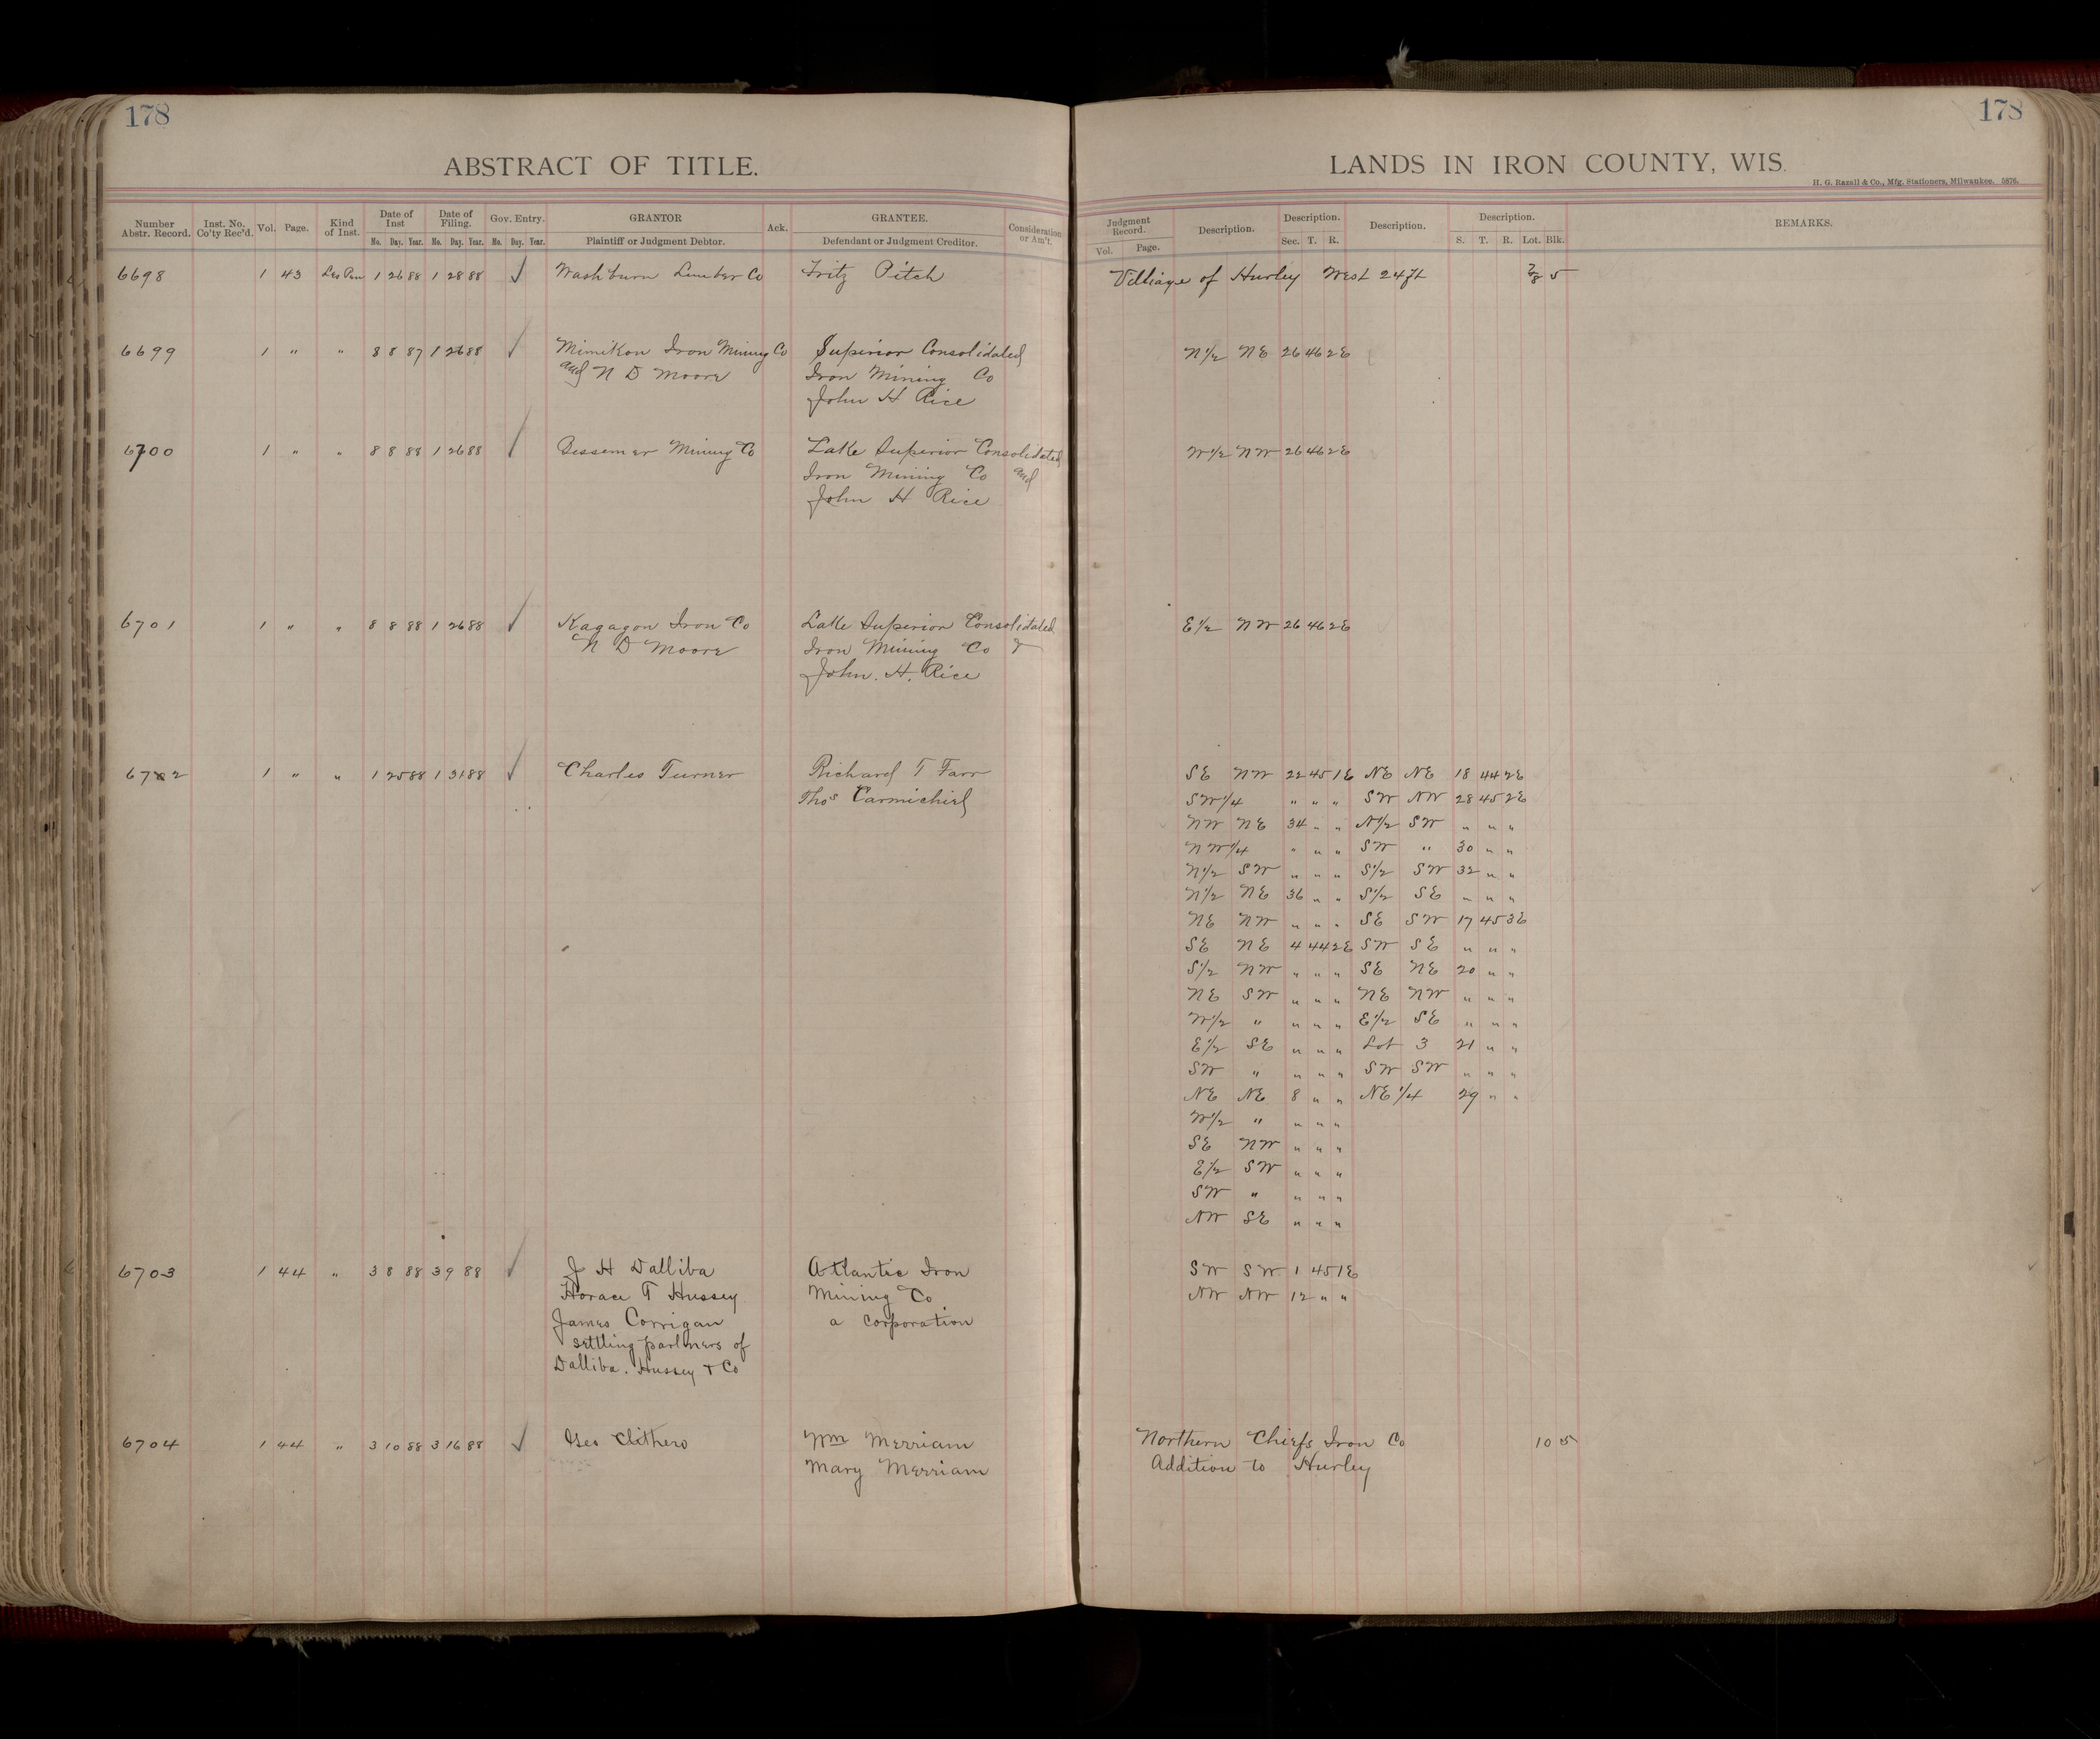 178
178
ABSTRACT OF TITLE.
LANDS IN IRON COUNTY, WIS.
H. G. Razall & Co., Mfg. Stationers, Milwaukee. 5876.
Number Abstr. Record. Inst. No. Co'ty Rec'd. Vol. Page. Kind of Inst. Date of Inst Mo. Day. Year. Date of Filing. Mo. Day. Year. Gov. Entry. Mo. Day. Year. GRANTOR Plaintiff or Judgment Debtor. Ack. GRANTEE. Defendant or Judgment Creditor. Consideration or Am't. Judgment Record. Vol. Page. Description. Description. Sec. T. R. Description. Description. S. T. R. Lot. Blk. REMARKS.
6698 1 43 Les Pen 1 26 88 1 28 88 ✓ Washburn Lumber Co Fritz Pitch Villiage of Hurley West 24 ft 5
6699 1 " " 8 8 87 1 26 88 ✓ Mimikon Iron Mining Co Superior Consolidated N1/2 NE 26 46 2E
and N D Moore Iron Mining Co
John H Rice
6700 1 " " 8 8 88 1 26 88 ✓ Bessemer Mining Co Lake Superior Consolidated W1/2 NW 26 46 2E
Iron Mining Co and
John H Rice
6701 1 " " 8 8 88 1 26 88 ✓ Kagagon Iron Co Lake Superior Consolidated E1/2 NW 26 46 2E
N D Moore Iron Mining Co &
John. H. Rice
6702 1 " " 1 25 88 1 31 88 ✓ Charles Turner Richard T Farr SE NW 22 45 1E NE NE 18 44 2E
Thos Carmichiel SW1/4 " " " SW NW 28 45 2E
NW NE 34 " " N1/2 SW " " "
NW1/4 " " " SW " 30 " "
N1/2 SW " " " S1/2 SW 32 " "
N1/2 NE 36 " " S1/2 SE " " "
NE NW " " " SE SW 17 45 3E
SE NE 4 44 2E SW SE " " "
S1/2 NW " " " SE NE 20 " "
NE SW " " " NE NW " " "
W1/2 " " " " E1/2 SE " " "
E1/2 SE " " " Lot 3 21 " "
SW " " " " SW SW " " "
NE NE 8 " " NE 1/4 29 " "
W1/2 " " " "
SE NW " " "
E1/2 SW " " "
SW " " " "
NW SE " " "
6703 1 44 " 3 8 88 3 9 88 ✓ J H Dalliba Atlantic Iron SW SW 1 45 1E
Horace T Hussey Mining Co NW NW 12 " "
James Corrigan a corporation
settling partners of
Dalliba. Hussey & Co
6704 1 44 " 3 10 88 3 16 88 ✓ Geo Clithero Wm Merriam Northern Chiefs Iron Co 10 5
Mary Merriam Addition to Hurley